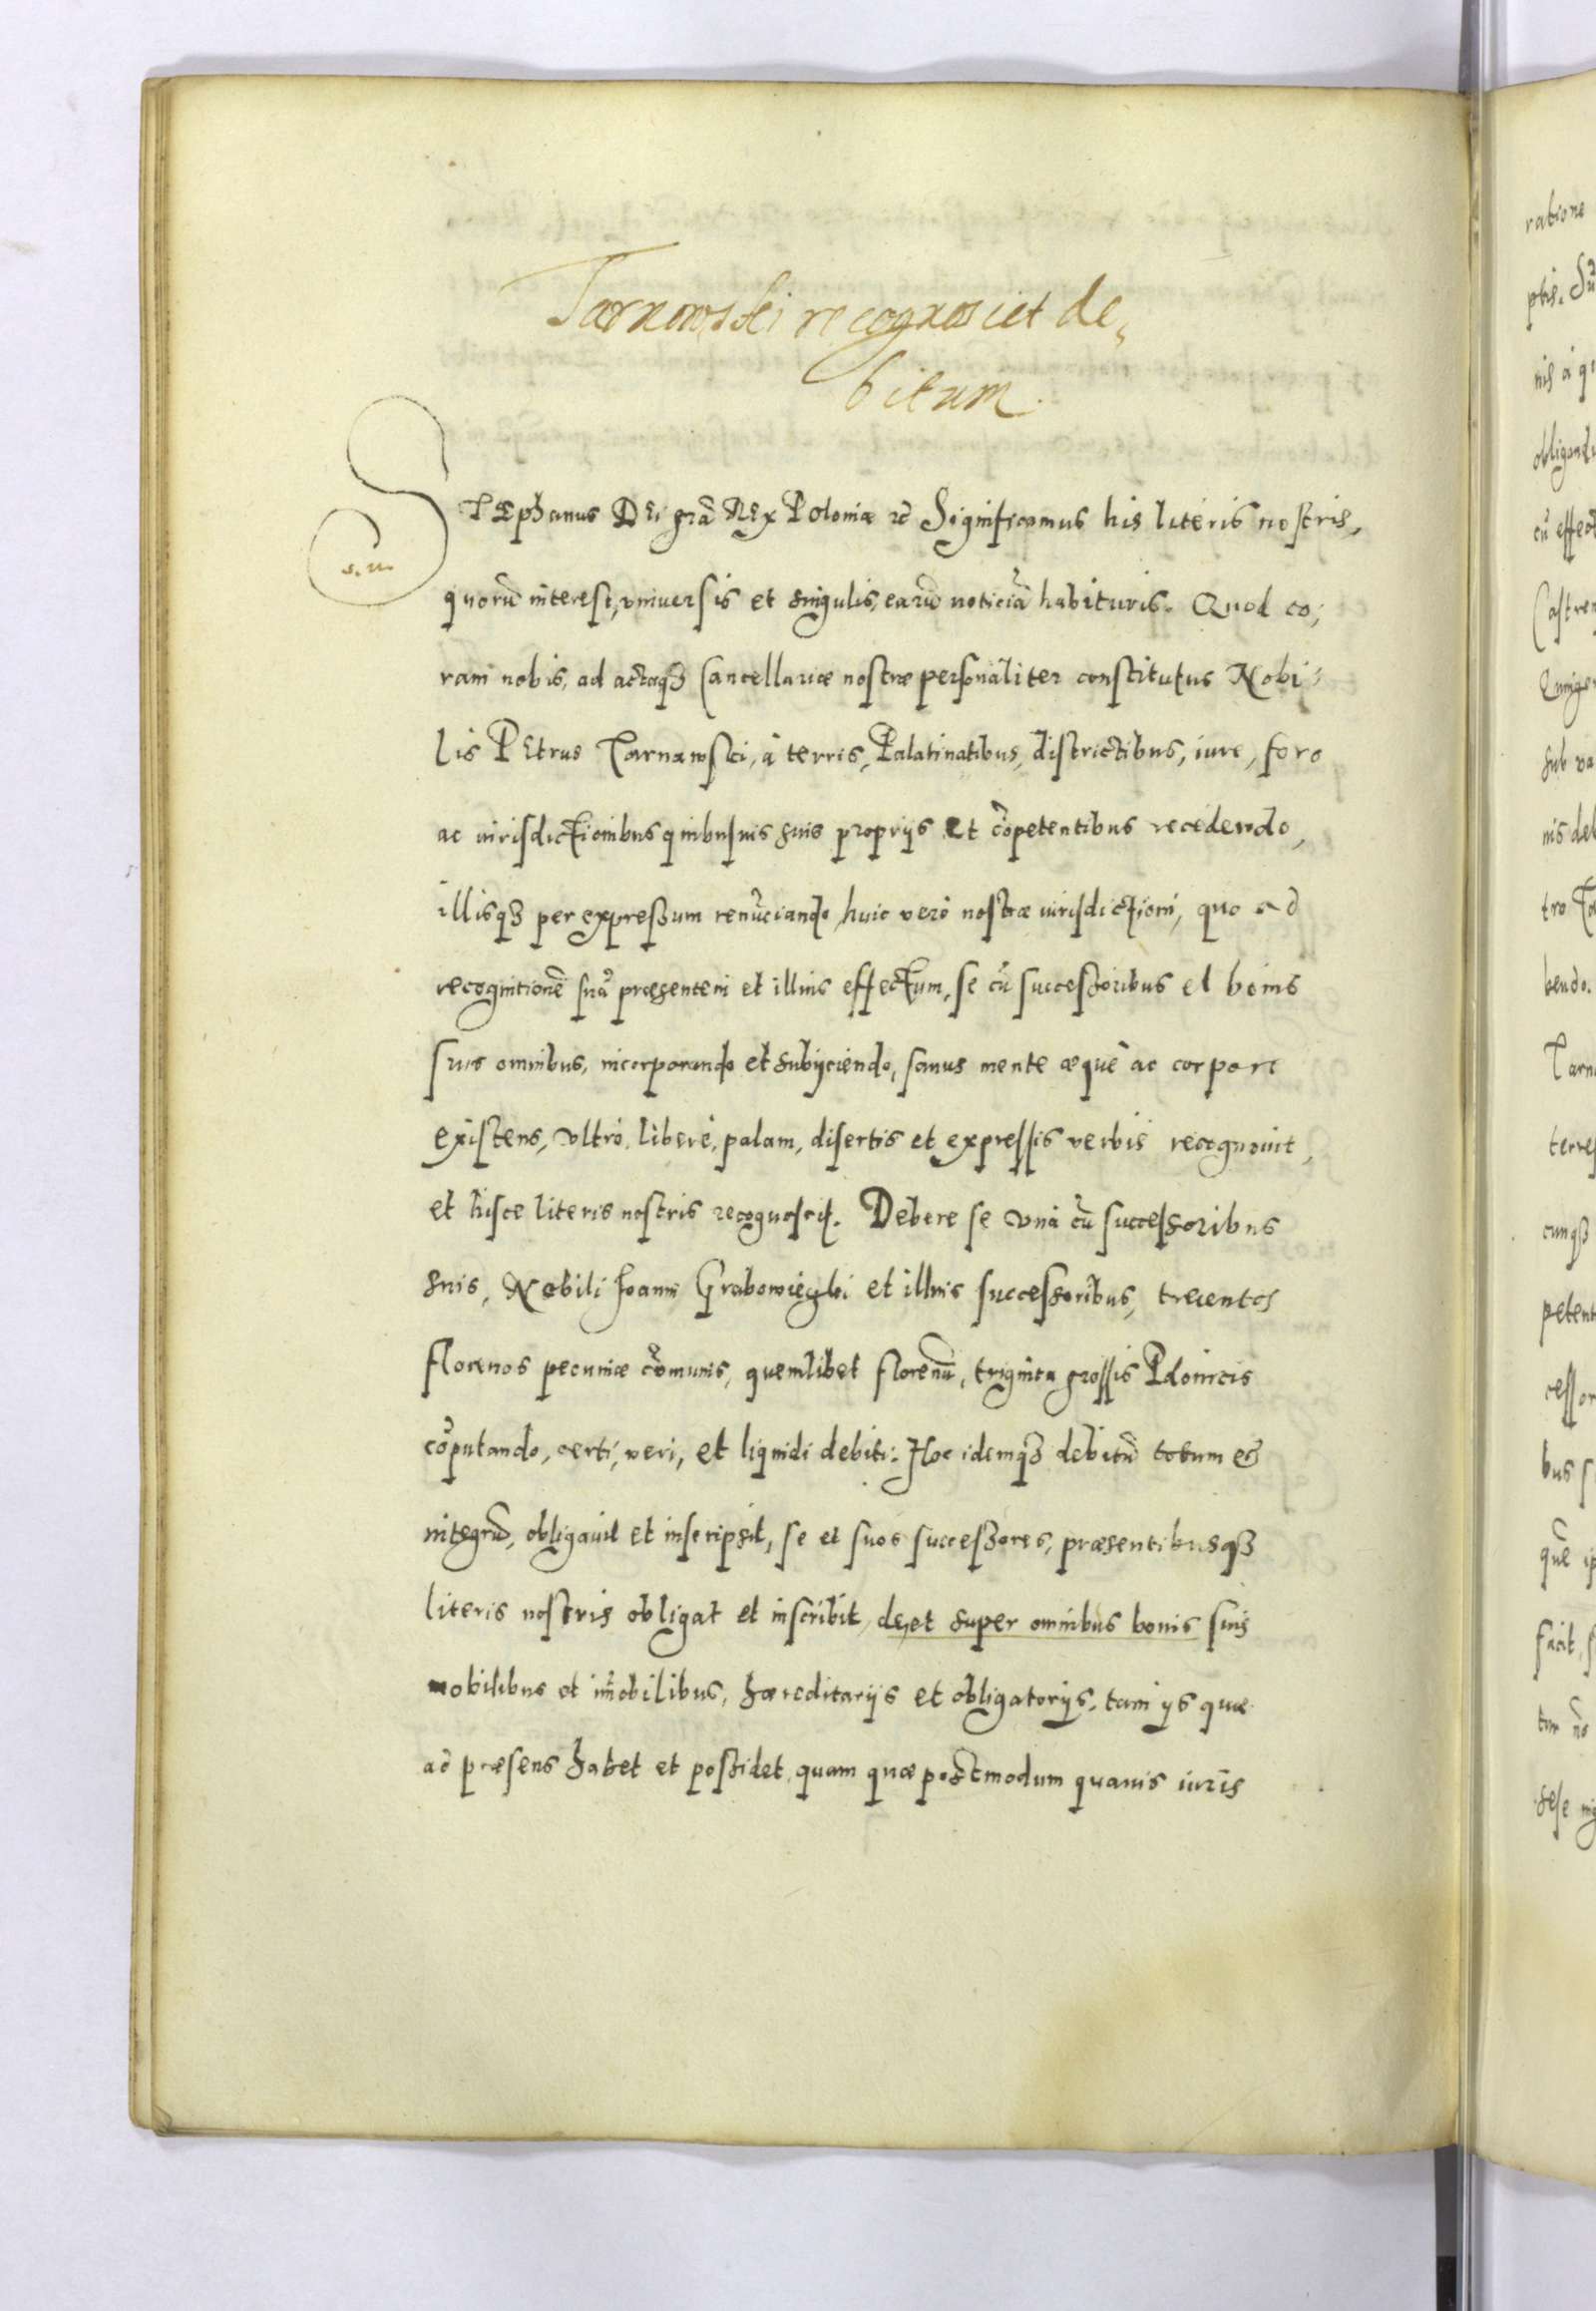 Tarnawski recognosciet de„
bitum.
STEphanus DEi grã REx Poloniæ ꝛc̃ Significamus his literis nostris,
quorũ interest, vniuersis et singulis, earũ noticiã habituris. Quod co„
ram nobis, ad actaqȝ Cancellariæ nostræ personaliter constitutus Nobi„
lis PEtrus Tarnawski, à terris, Palatinatibus, districtibus, iure, foro
ac iurisdictionibus quibusuis suis proprijs et cõpetentibus recedendo,
illisqȝ per expressum renũciando, huic verò nostræ iurisdictioni, quo ad
recognitionẽ suã præsentem et illius effectum, se cũ successoribus et bonis
suis omnibus, incorporando et subijciendo, sanus mente æquè ac corpore
existens, vltrò, liberè, palam, disertis et expressis verbis recognouit,
et hisce literis nostris recognoscit. Debere se vnà cũ successoribus
suis, Nobili Joanni Grabowieczki et illius successoribus, trecentos
florenos pecuniæ cõmunis, quemlibet florenũ, triginta grossis Polonicis
cõputando, certi, veri, et liquidi debiti: Hoc idemqȝ debitũ totum et
integrũ, obligauit et inscripsit, se et suos successores, præsentibusqȝ
literis nostris obligat et inscribit, de, et super omnibus bonis suis
mobilibus et im̃obilibus, hæreditarijs et obligatorijs, tam ijs quæ
ad præsens habet et possidet, quam quæ postmodum quauis iuris
s. m.